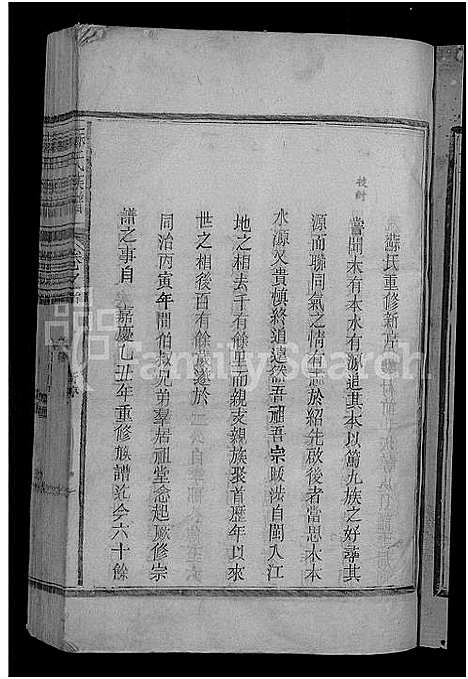 蘇氏重修新
嘗聞木有本水有源追其本以篤九族之好尋其
源而聯同氣之情有志於紹先啟後者當思木本
水源又貴慎終追遠然吾祖吾宗跋涉自閩入江
地之相去千有餘里而親支親族聚首歷年以來
世之相後百有餘歲遂於
同治丙寅年間伯叔兄弟羣居祖堂念起厥修宗
譜之事自嘉慶乙丑年重修族譜迄今六十餘
氏族譜
FamilySearch